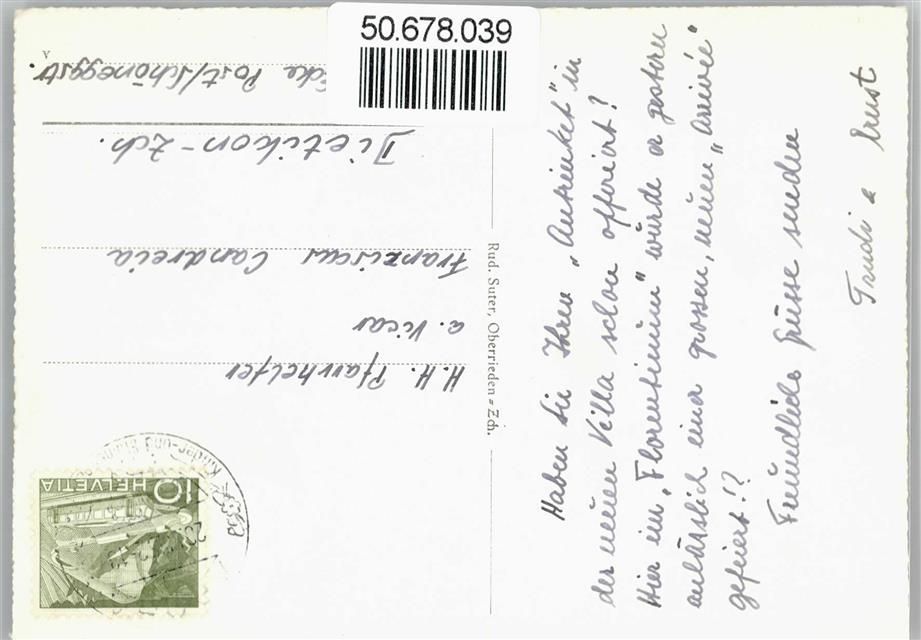 50.678.039
Haben Sie Ihren „Antrinket" in
der neuen Villa schon offeriert?
Hier im „Florentinum" wurde er gestern
anlässlich einer grossen, neuen „Arrivée"
gefeiert!?
Freundliche Grüsse senden
Trudi & Ernst
Rud. Suter, Oberrieden=Zch.
H.H. Pfarrhelfer
a. Vicar
Franziscus Candreia
Dietikon-Zch.
Post/Schöneggstr.
A
HELVETIA 10
Kinder- und